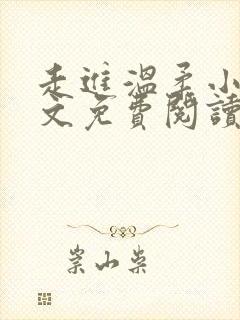 走進溫柔小
文免費閱讀
崇山柴